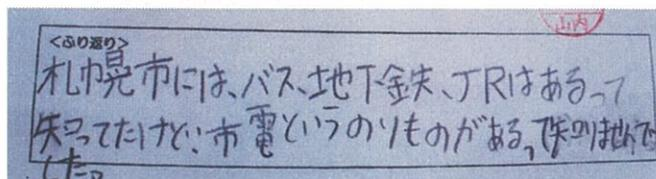 山内
<ふり返り>
札幌市には、バス、地下鉄、JRはあるって
知ってたけど、市電というのりものがあるって知りませんで
した。